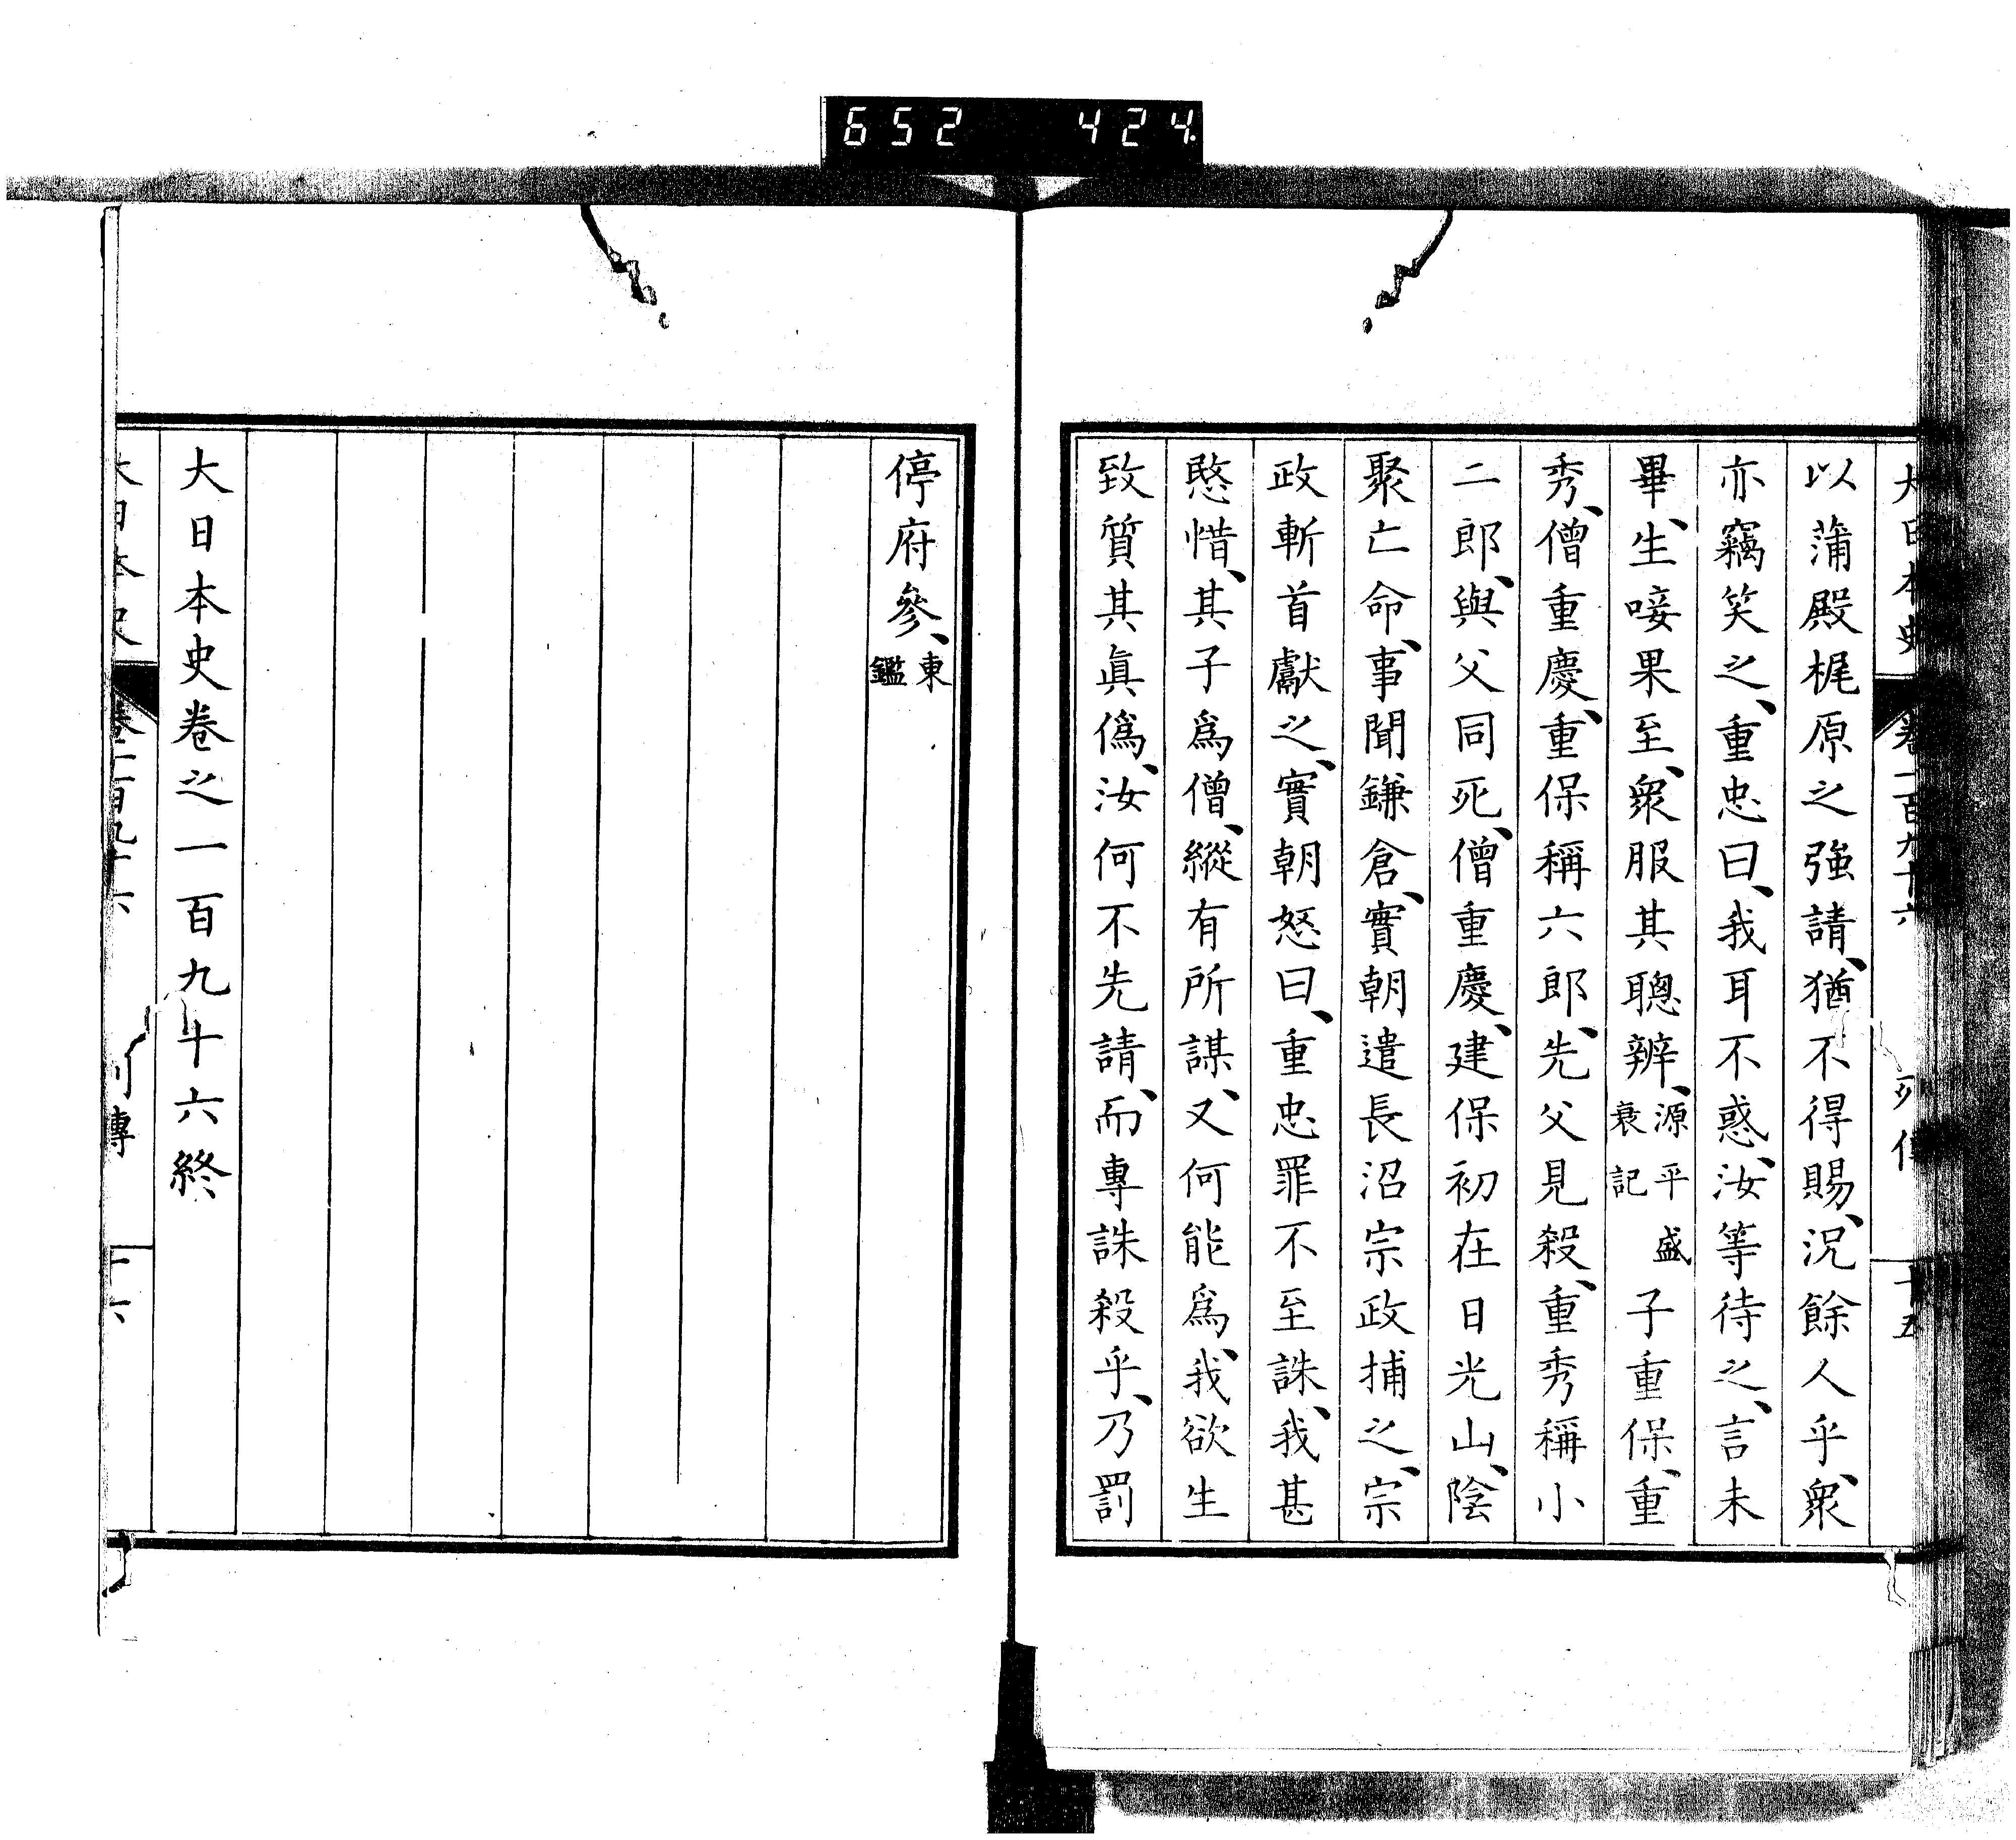 652 424
大日本史 卷一百九十六 列傳 十五
以蒲殿梶原之強請、猶不得賜、況餘人乎、衆
亦竊笑之、重忠曰、我耳不惑、汝等待之、言未
畢、生唼果至、衆服其聰辨、源平盛衰記子重保、重
秀、僧重慶、重保稱六郎、先父見殺、重秀稱小
二郎、與父同死、僧重慶、建保初在日光山、陰
聚亡命、事聞鎌倉、實朝遣長沼宗政捕之、宗
政斬首獻之、實朝怒曰、重忠罪不至誅、我甚
愍惜、其子爲僧、縱有所謀、又何能爲、我欲生
致質其眞僞、汝何不先請、而專誅殺乎、乃罰
停府參、東鑑
大日本史卷之一百九十六終
大日本史 卷一百九十六 列傳 十六